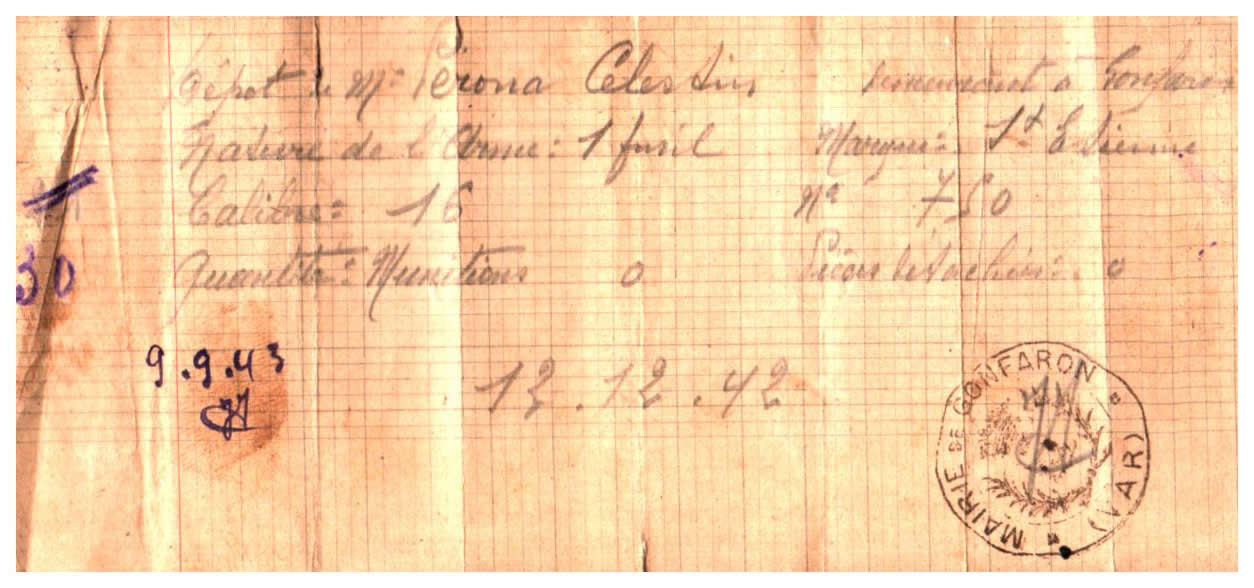 Dépot de Mr Perona Célestin demeurant à Gonfaron
Nature de l'Arme: 1 fusil Marque: St Etienne
Calibre: 16 N° 750
Quantité: Munitions 0 Pièces détachées: 0
30
9.9.43
12.12.42
MAIRIE DE GONFARON (VAR)